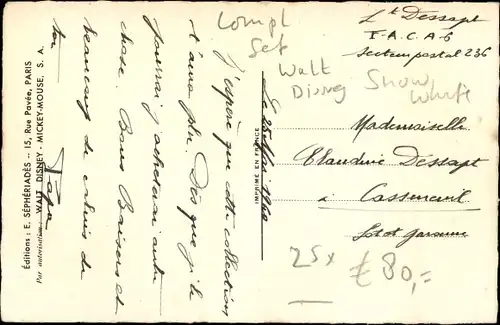 Lt Dessapt
F.A.C.A-6
Secteur postal 236
Compl
Set
Walt
Disney
Snow
White
Le 25 Mai 1940
J'espère que cette collection
t'aura plu. Dès que je le
pourrai j'achèterai autre
chose. Bons Baisers et
beaucoup de calins de
ton
Papa
Mademoiselle
Claudine Dessapt
à Casseneuil
Lot et Garonne
25x
€ 80,=
IMPRIMÉ EN FRANCE
Éditions : E. SÉPHÉRIADÈS - 15, Rue Pavée, PARIS
Par autorisation : WALT DISNEY - MICKEY-MOUSE, S. A.